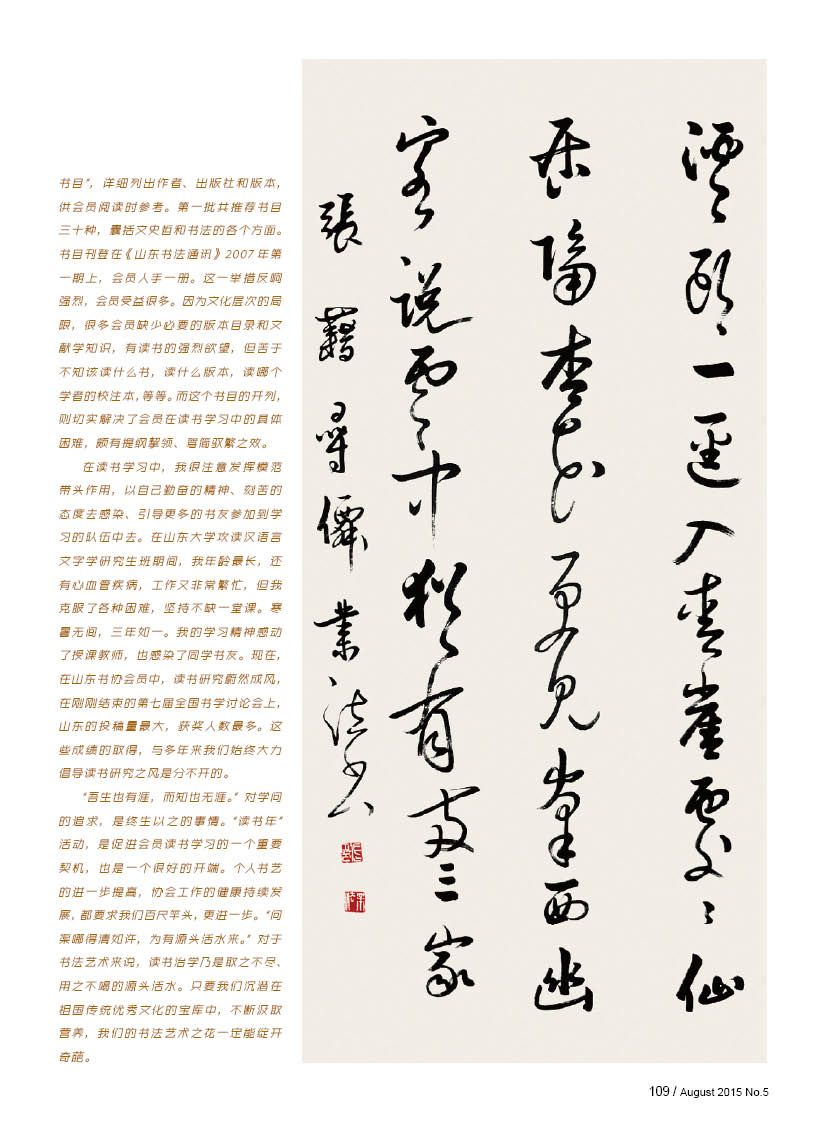 书目”，详细列出作者、出版社和版本，
供会员阅读时参考。第一批共推荐书目
三十种，囊括文史哲和书法的各个方面。
书目刊登在《山东书法通讯》2007 年第
一期上，会员人手一册。这一举措反响
强烈，会员受益很多。因为文化层次的局
限，很多会员缺少必要的版本目录和文
献学知识，有读书的强烈欲望，但苦于
不知该读什么书，读什么版本，读哪个
学者的校注本，等等。而这个书目的开列，
则切实解决了会员在读书学习中的具体
困难，颇有提纲挈领、驾简驭繁之效。
在读书学习中，我很注意发挥模范
带头作用，以自己勤奋的精神、刻苦的
态度去感染、引导更多的书友参加到学
习的队伍中去。在山东大学攻读汉语言
文字学研究生班期间，我年龄最长，还
有心血管疾病，工作又非常繁忙，但我
克服了各种困难，坚持不缺一堂课。寒
暑无间，三年如一。我的学习精神感动
了授课教师，也感染了同学书友。现在，
在山东书协会员中，读书研究蔚然成风，
在刚刚结束的第七届全国书学讨论会上，
山东的投稿量最大，获奖人数最多。这
些成绩的取得，与多年来我们始终大力
倡导读书研究之风是分不开的。
“吾生也有涯，而知也无涯。”对学问
的追求，是终生以之的事情。“读书年”
活动，是促进会员读书学习的一个重要
契机，也是一个很好的开端。个人书艺
的进一步提高，协会工作的健康持续发
展，都要求我们百尺竿头，更进一步。“问
渠哪得清如许，为有源头活水来。”对于
书法艺术来说，读书治学乃是取之不尽、
用之不竭的源头活水。只要我们沉潜在
祖国传统优秀文化的宝库中，不断汲取
营养，我们的书法艺术之花一定能绽开
奇葩。
溪頭一逕入青崖處處仙
居隔杏花更見峯西幽
客說雲中猶有兩三家
張籍尋僊 業法書
109 / August 2015 No.5